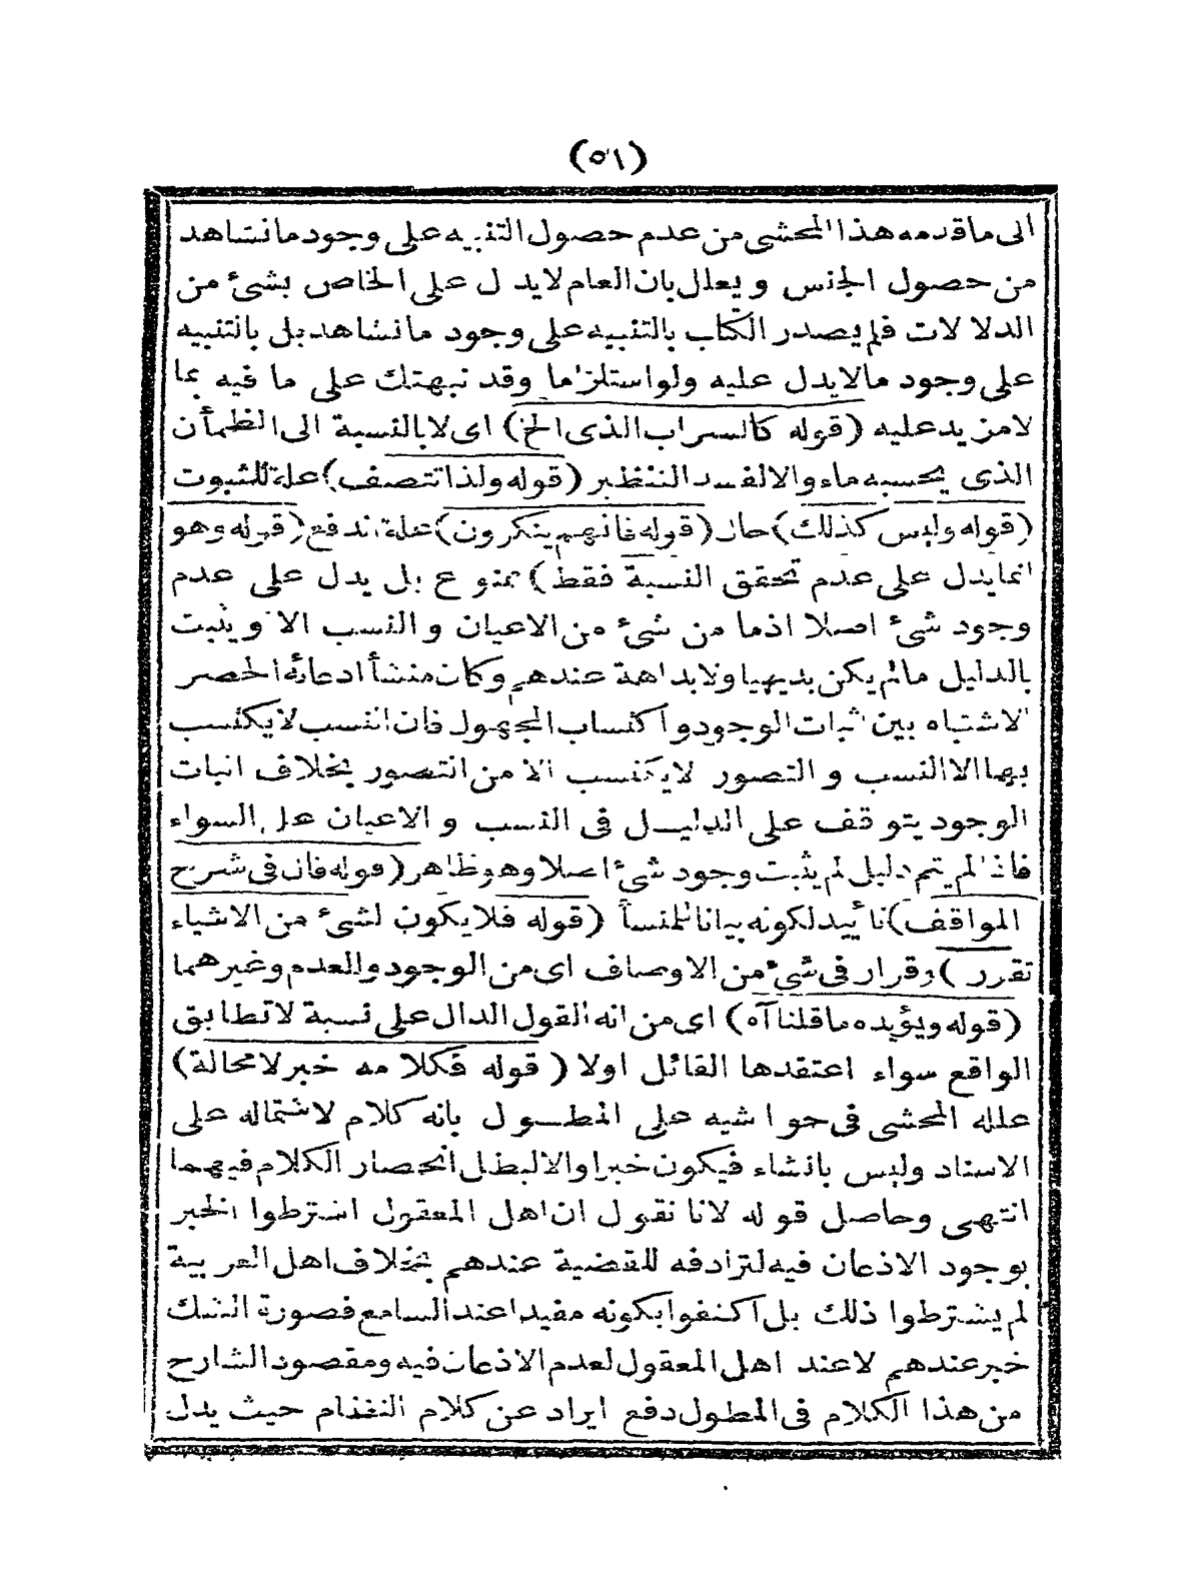 (٥١)
الى ماقدمه هذا المحشى من عدم حصول التنبيه على وجود مانشاهد
من حصول الجنس ويعلل بان العام لايدل على الخاص بشئ من
الدلالات فلم يصدر الكتاب بالتنبيه على وجود مانشاهد بل بالتنبيه
على وجود مالايدل عليه ولو استلزاما وقد نبهتك على ما فيه بما
لامزيد عليه (قوله كالسراب الذى الخ) اى لابالنسبة الى الظمأن
الذى يحسبه ماء والالفسد التنظير (قوله ولذا تتصف) علة للثبوت
(قوله وليس كذلك) حال (قوله فانهم ينكرون) علة اندفع (قوله وهو
انمايدل على عدم تحقق النسبة فقط) ممنوع بل يدل على عدم
وجود شئ اصلا اذما من شئ من الاعيان والنسب الا ويثبت
بالدليل مالم يكن بديهيا ولابداهة عندهم وكان منشأ ادعائه الحصر
الاشتباه بين اثبات الوجود واكتساب المجهول فان النسب لايكتسب
بها الا النسب والتصور لايكتسب الا من التصور بخلاف اثبات
الوجود يتوقف على الدليل فى النسب والاعيان على السواء
فاذا لم يتم دليل لم يثبت وجود شئ اصلا وهو ظاهر (قوله فان فى شرح
المواقف) تأييد لكونه بيانا للمنسأ (قوله فلايكون لشئ من الاشياء
تقرر) وقرار فى شئ من الاوصاف اى من الوجود والعدم وغيرهما
(قوله ويؤيده ماقلناآه) اى من انه القول الدال على نسبة لاتطابق
الواقع سواء اعتقدها القائل اولا (قوله فكلامه خبر لامحالة)
علله المحشى فى حواشيه على المطول بانه كلام لاشتماله على
الاسناد وليس بانشاء فيكون خبرا والالبطل انحصار الكلام فيهما
انتهى وحاصل قوله لانا نقول ان اهل المعقول اشترطوا الخبر
بوجود الاذعان فيه لترادفه للقضية عندهم بخلاف اهل العربية
لم يشترطوا ذلك بل اكتفوا بكونه مفيدا عند السامع فصورة الشك
خبر عندهم لاعند اهل المعقول لعدم الاذعان فيه ومقصود الشارح
من هذا الكلام فى المطول دفع ايراد عن كلام النظام حيث يدل